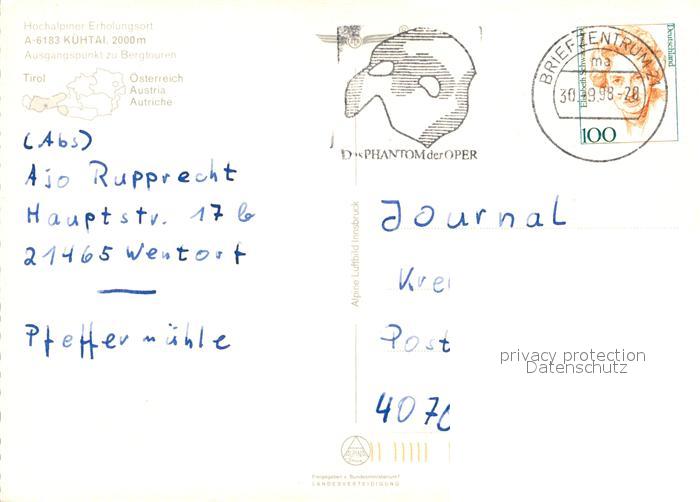 Hochalpiner Erholungsort
A-6183 KÜHTAI, 2000m
Ausgangspunkt zu Bergtouren
Tirol
Österreich
Austria
Autriche
(Abs)
Ajo Rupprecht
Hauptstr. 17 b
21465 Wentorf
Pfeffermühle
Das PHANTOM der OPER
BRIEFZENTRUM 21
ma
30.9.98-20
Deutschland
Elisabeth Schwa
100
Alpine Luftbild Innsbruck
Journal
Kre
Post
407
privacy protection
Datenschutz
ALPINE
Freigegeben v. Bundesministerium f.
LANDESVERTEIDIGUNG